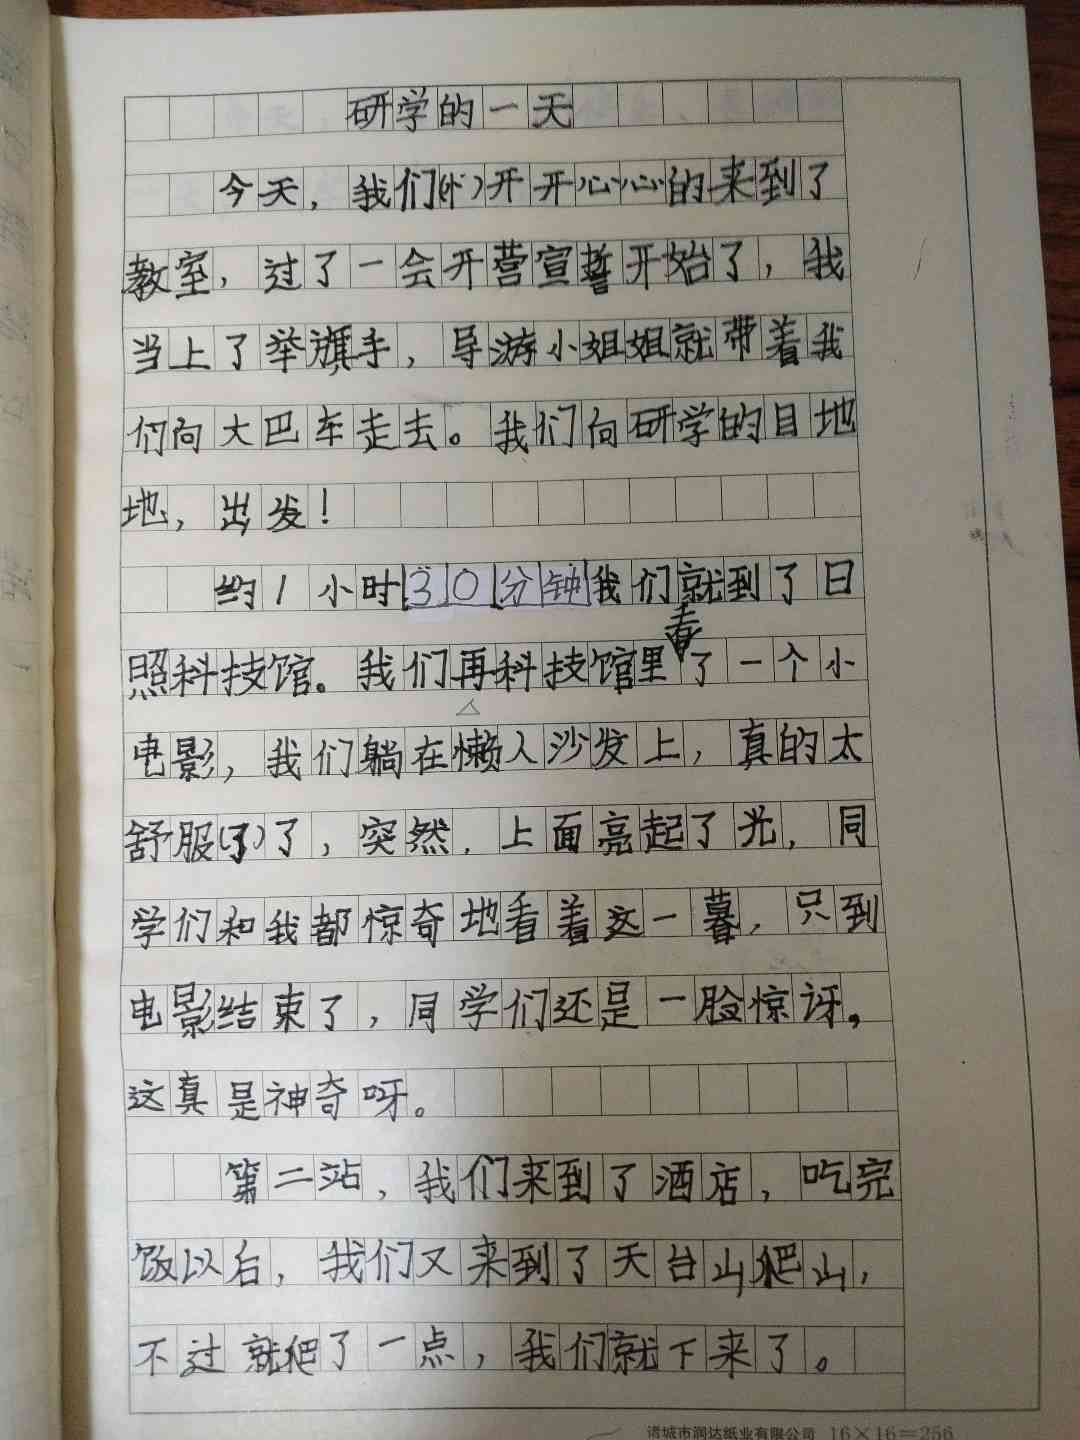 研学的一天
今天，我们(忄)开开心心的来到了
教室，过了一会开营宣誓开始了，我
当上了举旗手，导游小姐姐就带着我
们向大巴车走去。我们向研学的目地
地，出发！
约1小时30分钟我们就到了日
看
照科技馆。我们再科技馆里了一个小
电影，我们躺在懒人沙发上，真的太
舒服(了)了，突然，上面亮起了光，同
学们和我都惊奇地看着这一暮，只到
电影结束了，同学们还是一脸惊讶，
这真是神奇呀。
第二站，我们来到了酒店，吃完
饭以后，我们又来到了天台山爬山，
不过就爬了一点，我们就下来了。
诸城市润达纸业有限公司 16×16=256